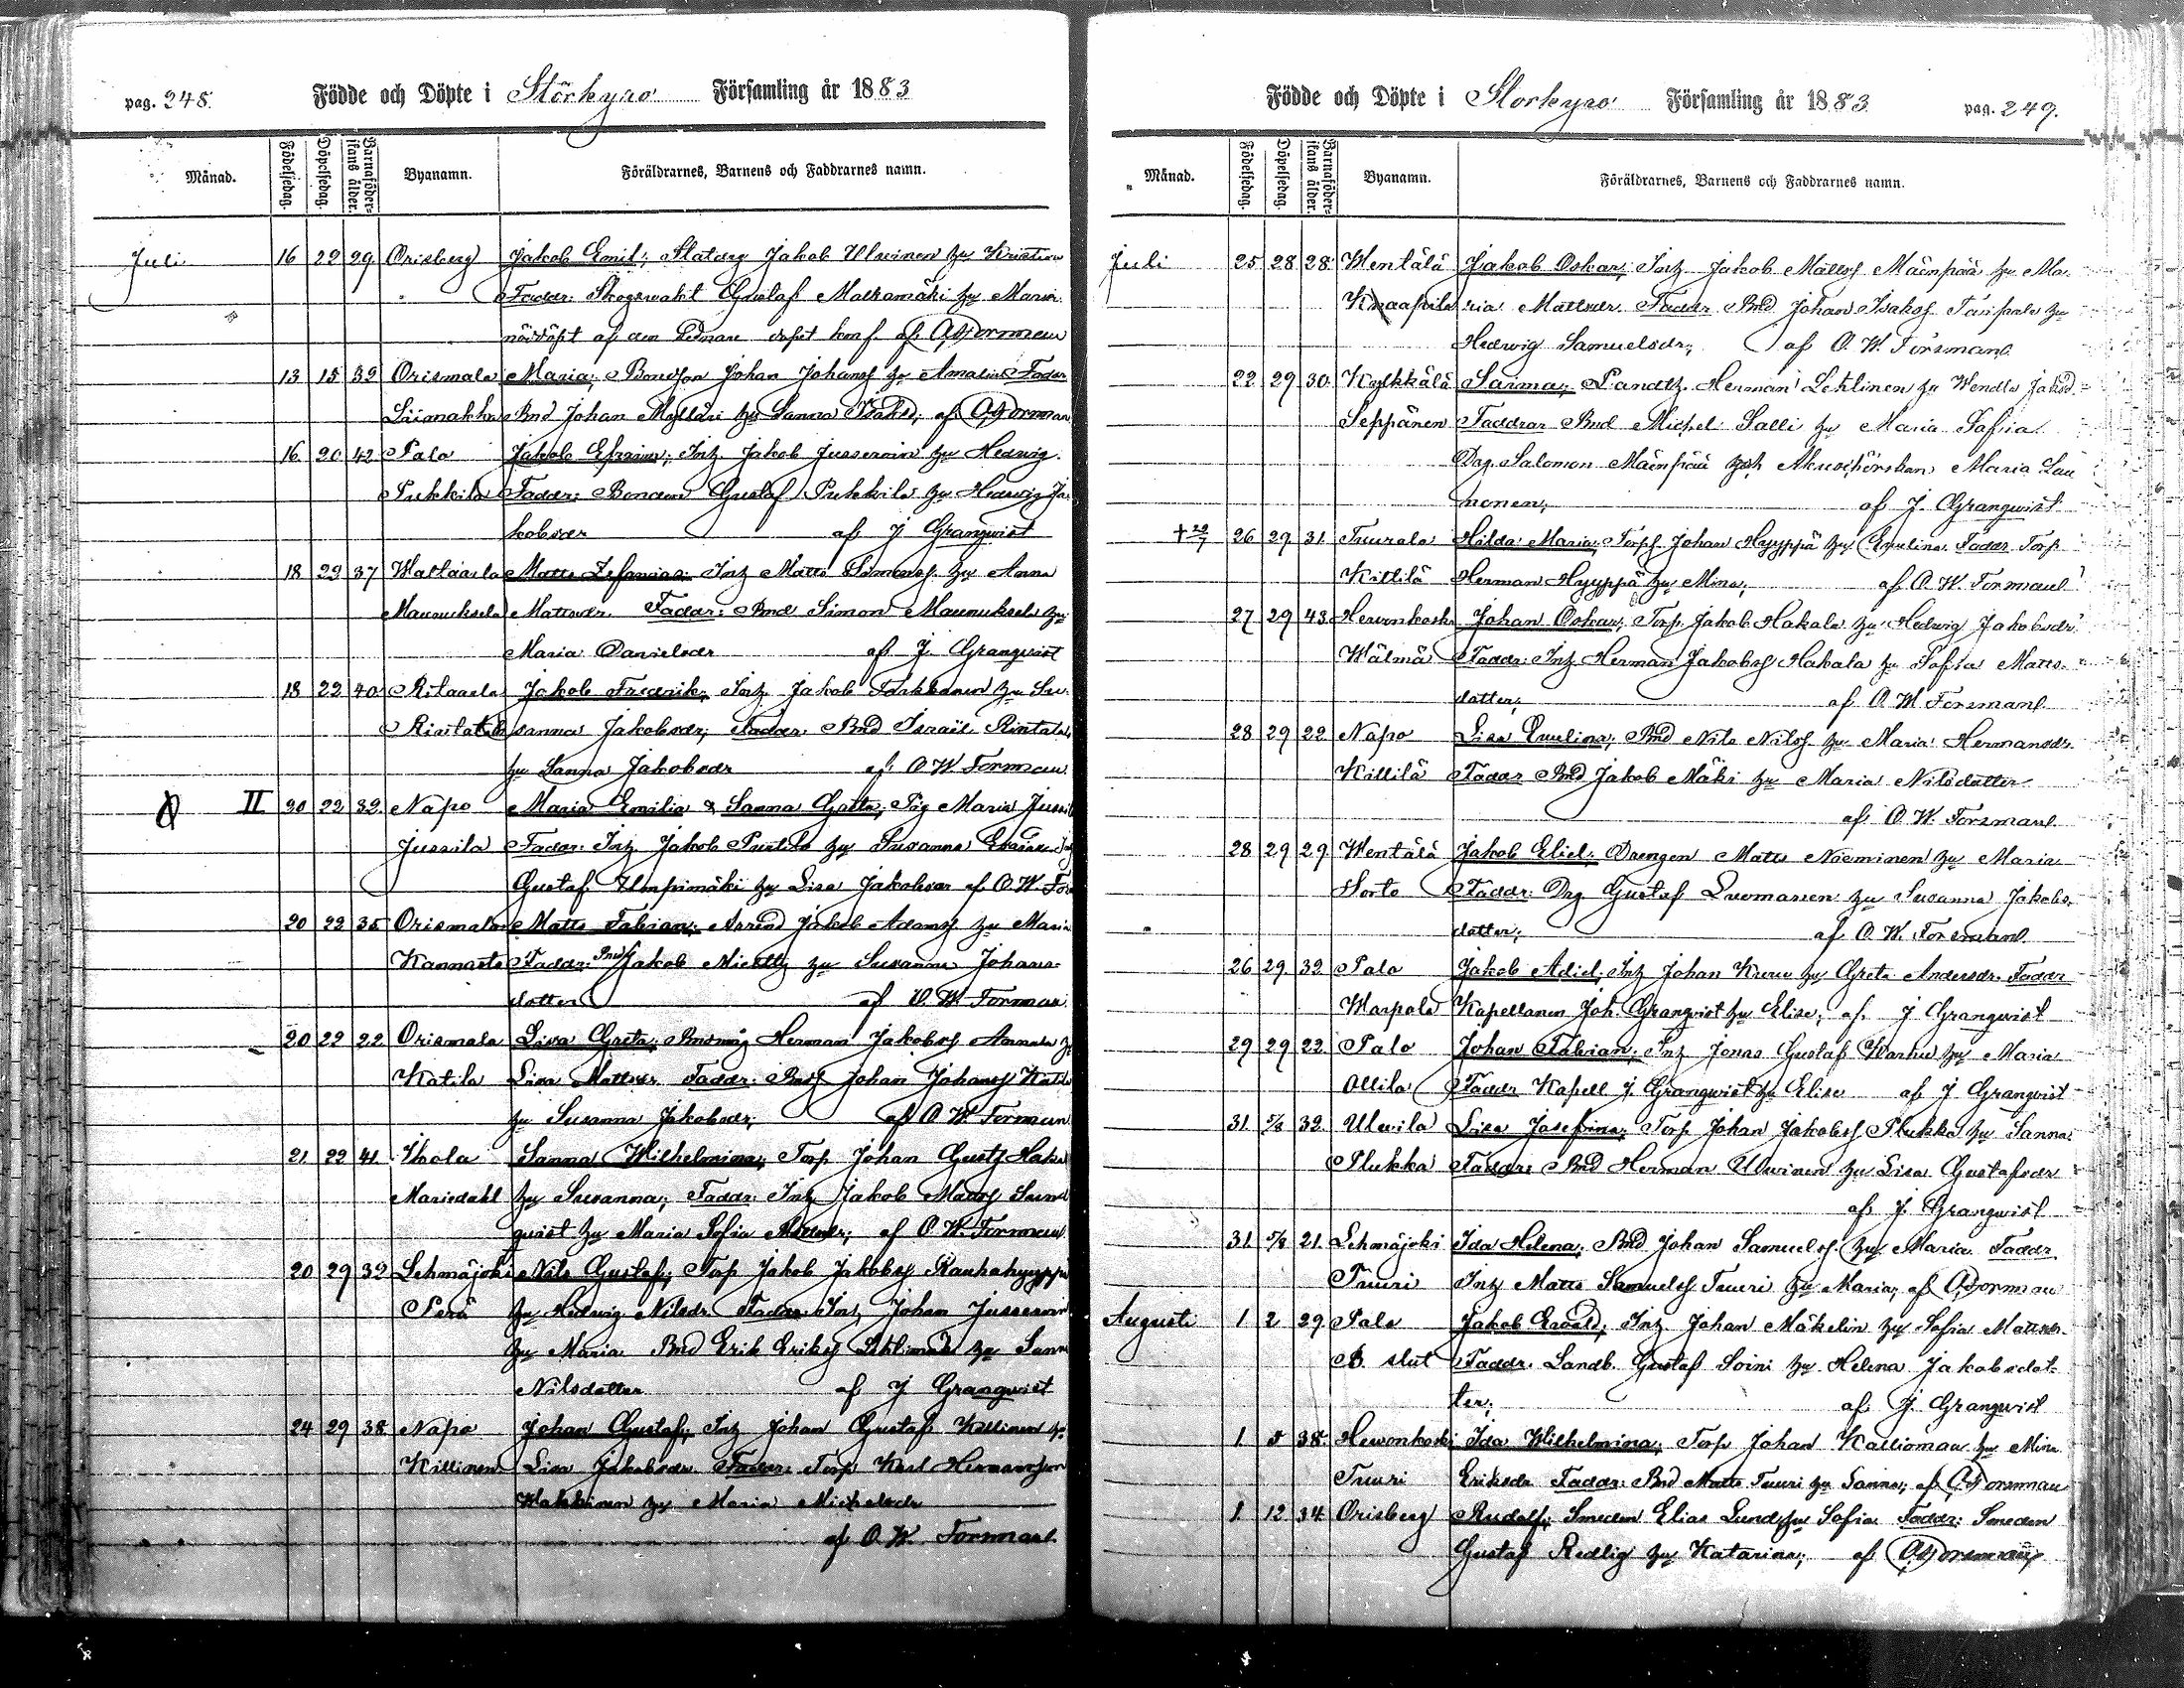 pag. 248. Födde och Döpte i Storkyro Församling år 1883
Månad. Födelsedag. Döpelsedag. Barnaföderskans ålder. Byanamn. Föräldrarnes, Barnens och Faddrarnes namn.
Juli 16 22 29 Orisberg Jakob Emil; Statdrg Jakob Ulvinen hu Kristina
Faddr: Skogswakt Gustaf Matkamäki hu Maria
nöddöpt af konf. af O W Forsman
13 15 39 Orismala Maria; Bondson Johan Johanss hu Amalia Faddr
Bnd Johan Myllari hu Sanna af O W Forsman
16 20 42 Palo Jakob Efraim; Inh Jakob Jusserain hu Hedwig.
Pukkila Faddr: Bonden Gustaf Pukkila hu Hedwig Ja-
kobsdr af J Granqvist
18 29 37 Waltaala Matts Zefanias; Inh Matts Simonss. hu Anna
Maunuksela Mattsdr. Faddr: Bnd Simon Maunuksela hu
Maria Danielsdr af J. Granqvist
18 22 40 Ritaala Jakob Fredrik; Inh. Jakob hu Su-
Rintala sanna Jakobsdr; Faddr. Bnd Israël Rintala
hu Sanna Jakobsdr af O W Forsman
II 20 22 32. Napo Maria Emilia & Sanna Greta; Pig Maria Jussila
Jussila Faddr: Inh Jakob Puntila hu Susanna
Gustaf hu Lisa Jakobsdr af O. W. For
20 22 35 Orismala Matts Fabian; Jakob Adamss hu Maria
Kannasto Faddr: Jakob hu Susanna Johans-
dotter af O. W. Forsman
20 22 22 Orismala Lisa Greta; Herman Jakobss Annala hu
Katila Lisa Mattsdr. Faddr: Johan Johanss Katila
hu Susanna Jakobsdr; af O W Forsman
21 22 41 Ikola Sanna Wilhelmina; Torp Johan Gusts
Mariedahl hu Susanna; Faddr: Inh Jakob Mattss Sund
qvist hu Maria Sofia Mattsdr; af O. W. Forsman
20 29 32 Lehmäjoki Nils Gustaf; Torp Jakob Jakobss Rauhahyyppä
Perä hu Hedwig Nilsdr. Faddr: Inh Johan Jusserain
hu Maria Bnd Erik Erikss hu Sanna
Nilsdotter af J Granqvist
24 29 38 Napo Johan Gustaf; Inh Johan Gustaf Killinen hu
Killinen Lisa Jakobsdr Faddr: Torp Karl Hermansson
Wakkinen hu Maria Mickelsdr
af O. W. Forsman
Födde och Döpte i Storkyro Församling år 1883 pag. 249.
Månad. Födelsedag. Döpelsedag. Barnaföderskans ålder. Byanamn. Föräldrarnes, Barnens och Faddrarnes namn.
Juli 25 28 28 Wentälä Jakob Oskar; Inh Jakob Mattss Mäenpää hu Ma-
Knaapila ria Mattsdr. Faddr. Bnd Johan Isakss Tanpala hu
Hedwig Samuelsdr; af O. W. Forsman
22 29 30 Kylkkälä Saima; Landtz. Herman Lehtinen hu Wendla Jakobd.
Seppänen Faddrar Bnd Michel Salli hu Maria Sofia
Drg. Salomon Mäenpää och Akuschörskan Maria Lau
nonen; af J. Granqvist
† 29/7 26 29 31 Tuurala Hilda Maria; Torp Johan Hyyppä hu Eveline. Faddr. Torp
Kittilä Herman Hyyppä hu Mina; af O. W. Forsman
27 29 43 Hevonkoski Johan Oskar; Torp. Jakob Hakala hu Hedwig Jakobsdr.
Wälmä Faddr: Inh Herman Jakobss Hakala hu Sofia Matts-
dotter; af O. W. Forsman
28 29 22 Napo Lisa Evelina; Bnd Nils Nilss hu Maria Hermansdr.
Killilä Faddr Bnd Jakob Mäki hu Maria Nilsdotter
af O. W. Forsman
28 29 29 Wentälä Jakob Eliel; Drengen Matts Nieminen hu Maria
Sorto Faddr: Drg Gustaf Luomanen hu Susanna Jakobs-
dotter; af O. W. Forsman
26 29 32 Palo Jakob Adiel; Inh Johan hu Greta Andersdr. Faddr
Warpala Kapellanen Joh. Granqvist hu Elise; af J Granqvist
29 29 22 Palo Johan Fabian; Inh Jonas Gustaf hu Maria
Ollila Faddr Kapell J. Granqvist hu Elise af J Granqvist
31 5/8 32 Ulvila Lisa Josefina; Torp Johan Jakobss Plukka hu Sanna
Plukka Faddr: Bnd Herman Ulvinen hu Lisa Gustafsdr
af J Granqvist
31 5/8 21 Lehmäjoki Ida Helena; Bnd Johan Samuelss hu Maria Faddr.
Tuuri Inh Matts Samuelss Tuuri hu Maria; af O W Forsman
Augusti 1 2 29 Palo Jakob Evald; Inh Johan Mäkelin hu Sofia Mattsdr.
B. slut Faddr. Landb. Gustaf Soini hu Helena Jakobsdot-
ter; af J. Granqvist
1 5 38 Hevonkoski Ida Wilhelmina; Torp Johan Kalliomaa hu Mina
Tuuri Eriksdr Faddr: Bnd Matts Tuuri hu Sanna; af O W Forsman
1 12 34 Orisberg Rudolf; Smeden Elias Lund hu Sofia Faddr: Smeden
Gustaf Redlig hu Katarina; af O W Forsman